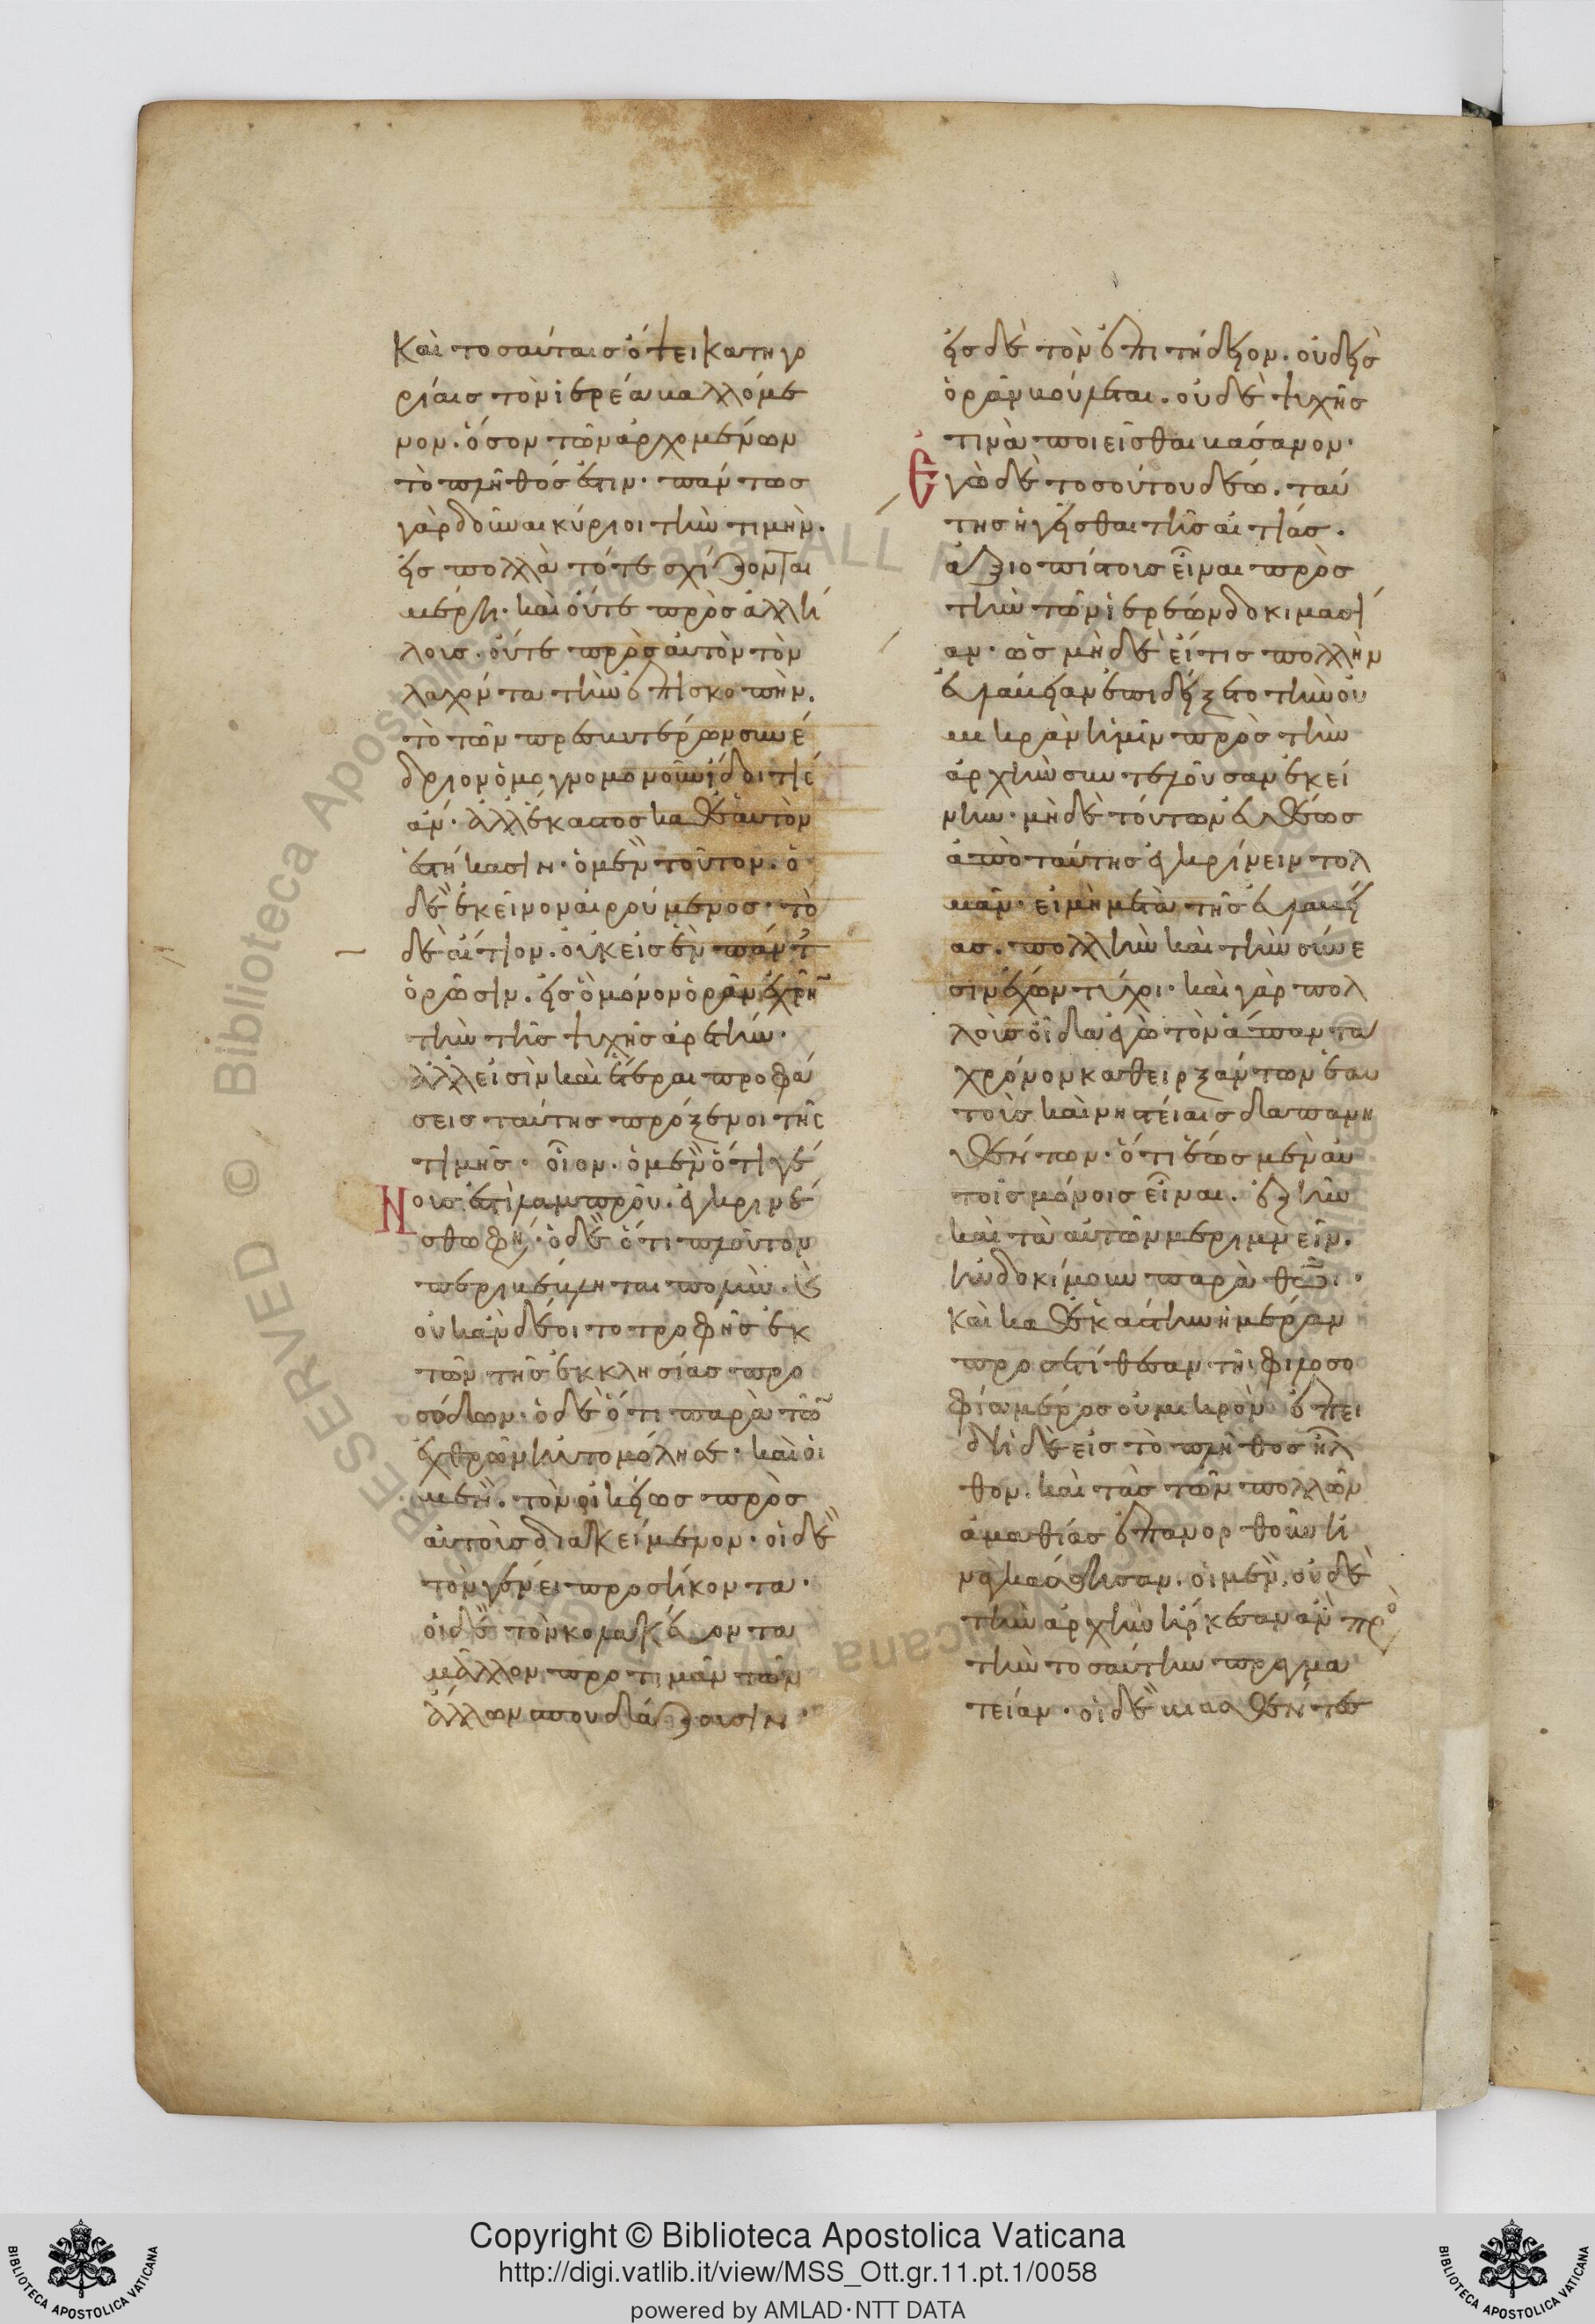 Καὶ τοσαύταις ὄψει κατηγο
ρίαις τὸν ἱερέα βαλλόμε
νον. ὅσον τῶν ἀρχομένων
τὸ πλῆθός ἐστιν. πάντες
γὰρ δοῦναι κύριοι τὴν τιμὴν.
εἰς πολλὰ τότε σχίζονται
μέρη. καὶ οὔτε πρὸς ἀλλή
λους. οὔτε πρὸς αὐτὸν τὸν
λαχόντα τὴν ἐπισκοπὴν.
τὸ τῶν πρεσβυτέρων συνέ
δριον ὁμογνωμονοῦν ἴδοι τίς
ἄν. ἀλλ' ἕκαστος καθ' ἑαυτὸν
ἑστήκασιν. ὁ μὲν τοῦτον. ὁ
δὲ ἐκεῖνον αἱρούμενος. τὸ
δὲ αἴτιον. οὐκ εἰς ἓν πάντες
ὁρῶσιν. εἰς ὃ μόνον ὁρᾶν ἐχρῆν
τὴν τῆς ψυχῆς ἀρετήν.
ἀλλ' εἰσὶν καὶ ἕτεραι προφά
σεις ταύτης πρόξενοι τῆς
τιμῆς. οἷον. ὁ μὲν ὅτι γέ
νους ἐστὶ λαμπροῦ. ἐγκρινέ
σθω φησί. ὁ δὲ ὅτι πλοῦτον
περιβέβληται πολὺν. καὶ
οὐκ ἂν δέοιτο τροφῆς ἐκ
τῶν τῆς ἐκκλησίας προ
σόδων. ὁ δὲ ὅτι παρὰ τῶν
ἐχθρῶν ηὐτομόλησε. καὶ οἱ
μὲν. τὸν οἰκείως πρὸς
αὐτοὺς διακείμενον. οἱ δὲ
τὸν γένει προσήκοντα.
οἱ δὲ τὸν κολακεύοντα
μᾶλλον προτιμᾶν τῶν
ἄλλων σπουδάζουσιν.
εἰς δὲ τὸν ἐπιτήδειον. οὐδεὶς
ὁρᾶν βούλεται. οὐδὲ ψυχῆς
τινὰ ποιεῖσθαι βάσανον.
Ἐγὼ δὲ τοσούτου δέω. ταύ
της ἡγεῖσθαι τῆς αἰτίας.
ἀξιοπίστους εἶναι πρὸς
τὴν τῶν ἱερέων δοκιμασί
αν. ὡς μηδὲ εἴ τις πολλὴν
εὐλάβειαν ἐπιδείξετο τὴν οὐ
μικρὰν ἡμῖν πρὸς τὴν
ἀρχὴν συντελοῦσαν ἐκεί
νην. μηδὲ τοῦτον εὐθέως
ἀπὸ ταύτης ἐγκρίνειν τολ
μᾶν. εἰ μὴ μετὰ τῆς εὐλαβεί
ας. πολλὴν καὶ τὴν σύνε
σιν ἔχων τύχοι. καὶ γὰρ πολ
λοὺς οἶδα ἐγὼ τὸν ἅπαντα
χρόνον καθειρξάντων ἑαυ
τοὺς καὶ νηστείαις δαπανη
θέντων. ὅτι ἕως μὲν αὐ
τοῖς μόνοις εἶναι. ἐξῆν
καὶ τὰ αὐτῶν μεριμνεῖν.
ηὐδοκίμουν παρὰ θεῶ.
καὶ καθ' ἑκάστην ἡμέραν
προσετίθεσαν τῆ φιλοσο
φία μέρος οὐ μικρόν ἐπει
δὴ δὲ εἰς τὸ πλῆθος ἦλ
θον. καὶ τὰς τῶν πολλῶν
ἀμαθίας ἐπανορθοῦν ἠ
ναγκάσθησαν. οἱ μὲν. οὐδὲ
τὴν ἀρχὴν ἤρκεσαν ἂν πρὸ
τὴν τοσαύτην πραγμα
τείαν. οἱ δὲ βιασθέντες
Copyright © Biblioteca Apostolica Vaticana
http://digi.vatlib.it/view/MSS_Ott.gr.11.pt.1/0058
powered by AMLAD·NTT DATA